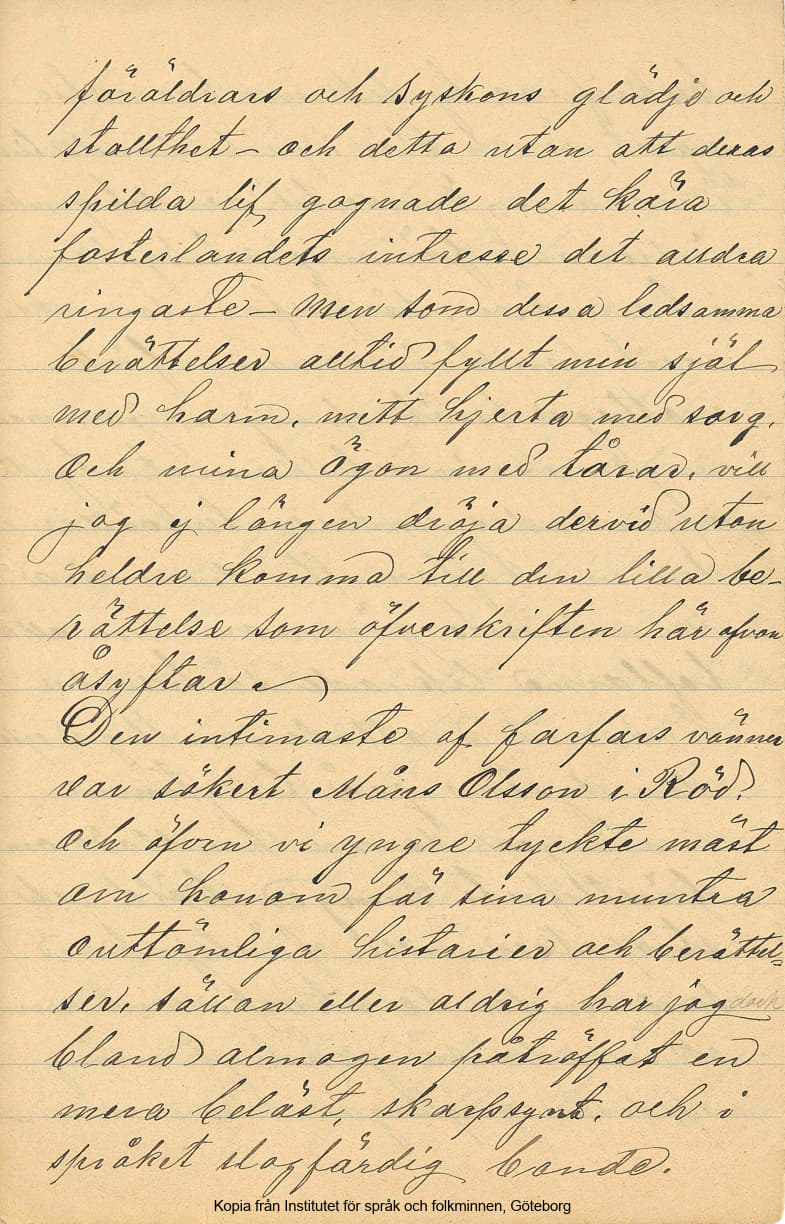 föräldrars och syskons glädje och
stollthet – och detta utan att deras
spilda lif gagnade det kära
fosterlandets intresse det alldra
ringaste – Men som dessa ledsamma
berättelser alltid fyllt min själ
med harm, mitt hjerta med sorg,
och mina ögon med tårar, vill
jag ej längen dröja dervid utan
heldre komma till den lilla be-
rättelse som öfverskriften här ofvan
åsyftar.
Den intimaste af farfars vänner
var säkert Måns Olsson i Röd,
och öfven vi yngre tyckte mäst
om honom för sina muntra
outtömliga historier och berättel-
ser, sällan eller aldrig har jag dock
bland almogen påträffat en
mera beläst, skarpsynt, och i
språket slagfärdig bonde.
Kopia från Institutet för språk och folkminnen, Göteborg